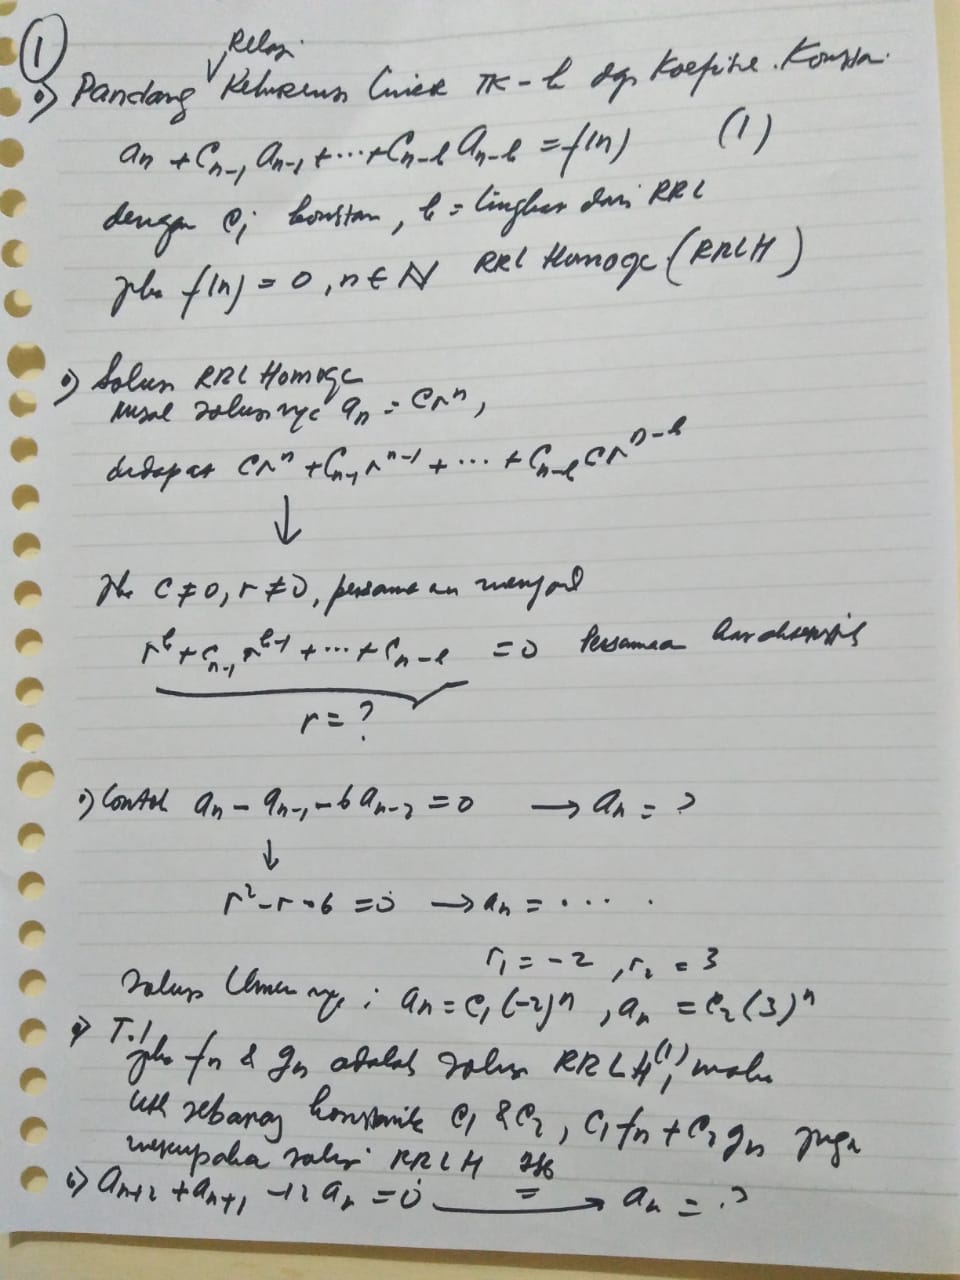 ①
Relasi
•) Pandang Rekurensi Linier TK-k dgn Koefisien Konstan.
an + Cn-1 an-1 + ... + Cn-k an-k = f(n) (1)
dengan Ci konstan, k = tingkat dari RRL
jika f(n) = 0, n ∈ N RRL Homogen (RRLH)
•) Solusi RRL Homogen
misal solusinya an = Crⁿ,
didapat Crⁿ + Cn-1 rⁿ⁻¹ + ... + Cn-k Crⁿ⁻ᵏ
↓
Jika C ≠ 0, r ≠ 0, persamaan menjadi
rᵏ + Cn-1 rᵏ⁻¹ + ... + Cn-k = 0 Persamaan karakteristik
r = ?
•) Contoh an - an-1 - 6 an-2 = 0 → an = ?
↓
r² - r - 6 = 0 → an = ... .
r1 = -2, r2 = 3
Solusi Umumnya : an = C1 (-2)ⁿ, an = C2 (3)ⁿ
•) T.1
jika fn & gn adalah solusi RRLH (1), maka
utk sebarang konstanta C1 & C2, C1 fn + C2 gn juga
merupakan solusi RRLH
•) an+2 + an+1 - 12 an = 0 → an = ?